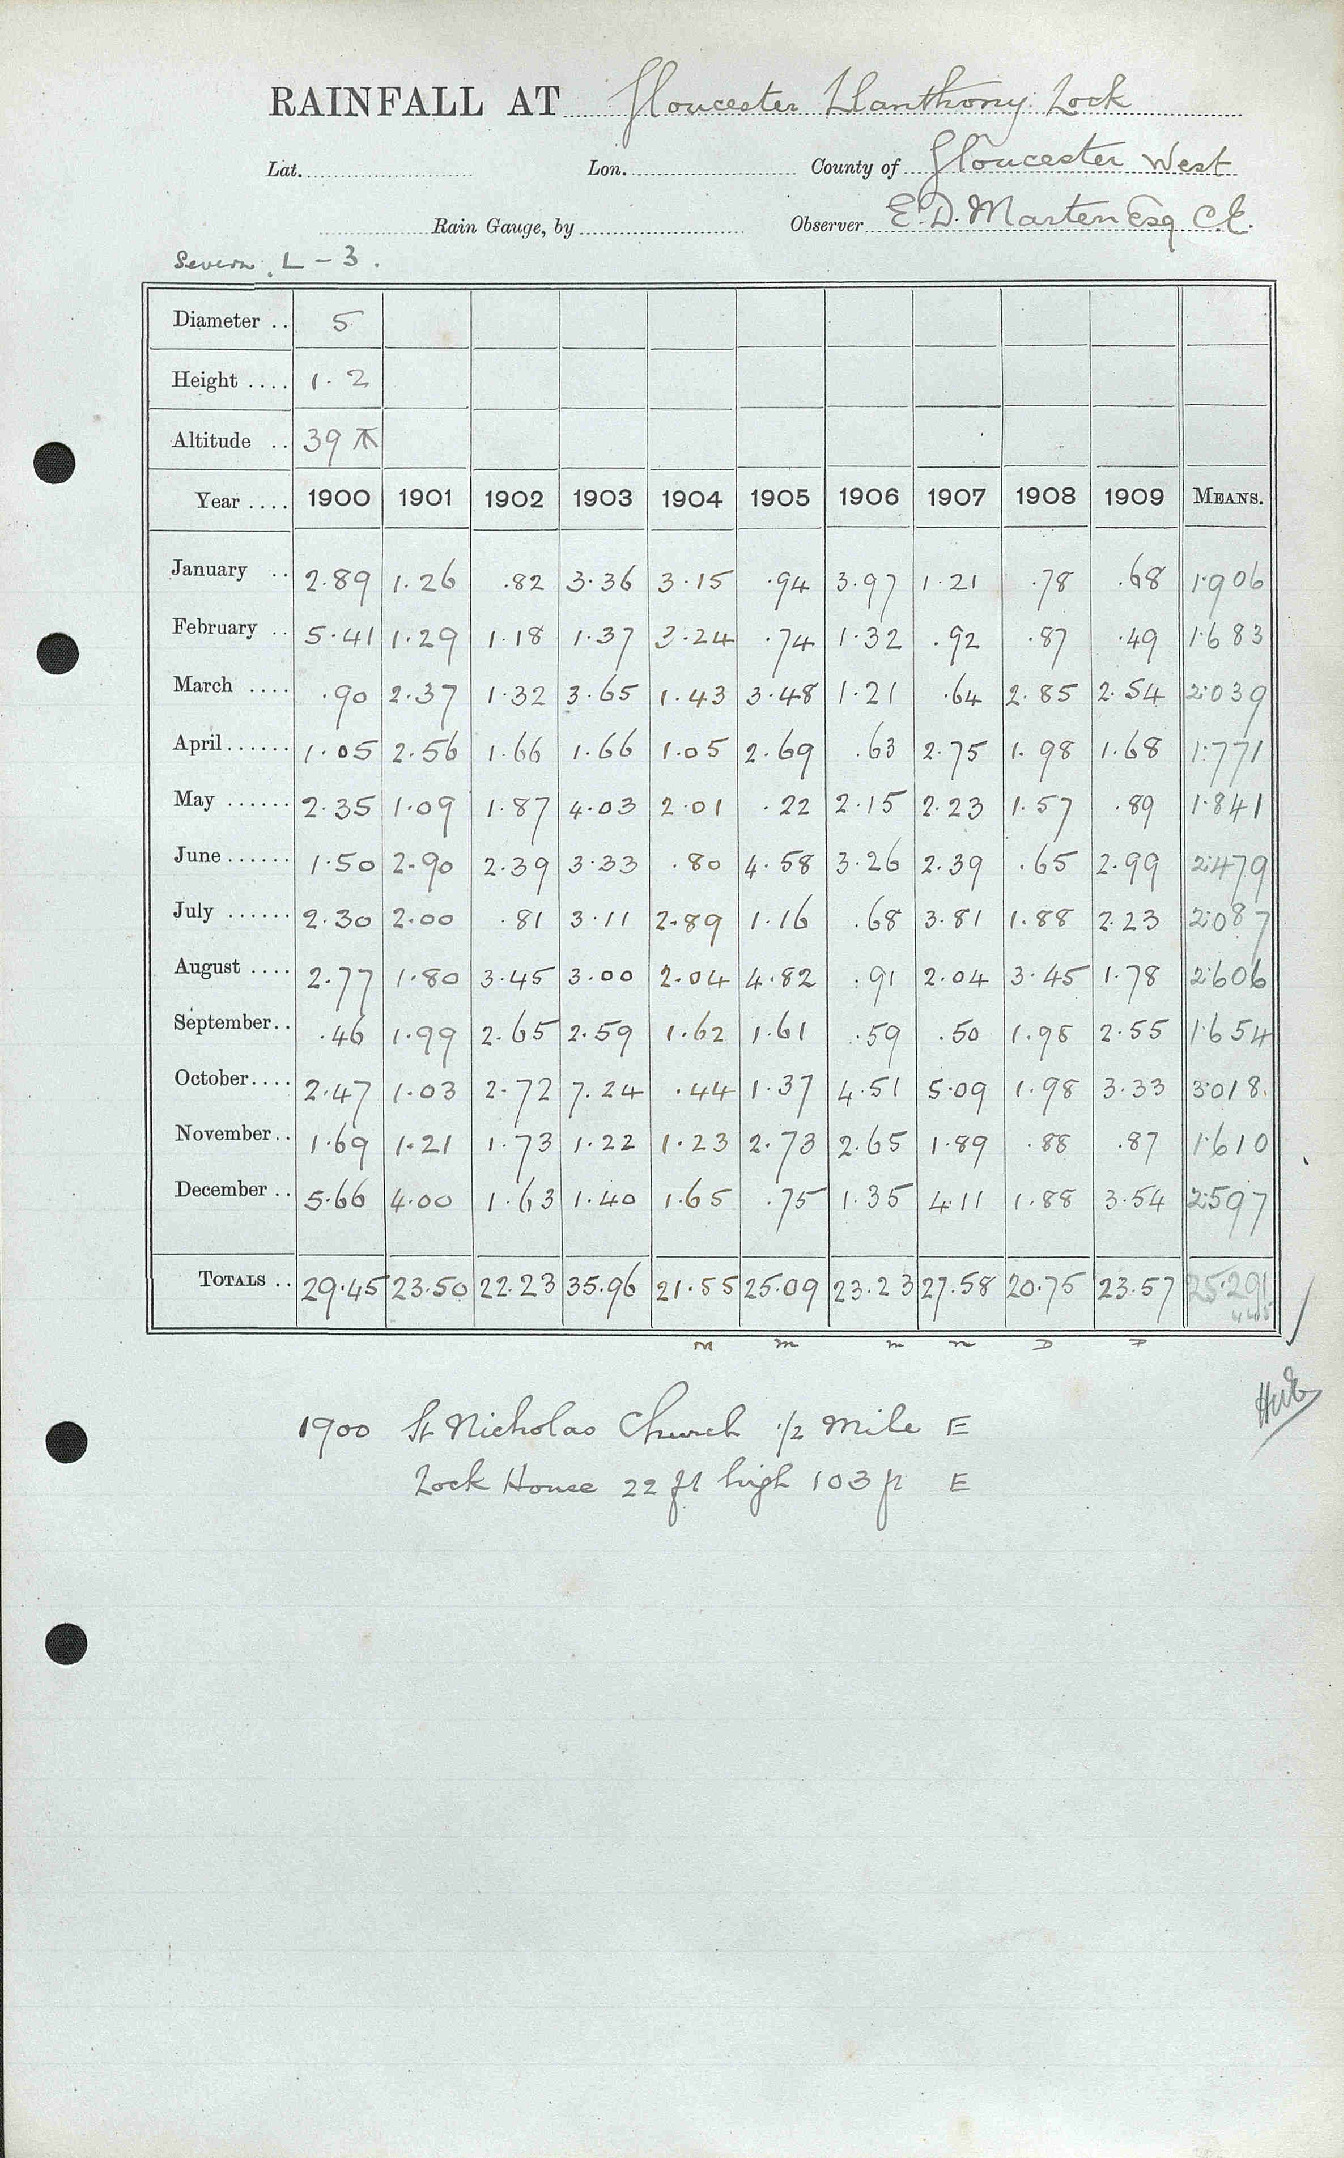 RAINFALL AT Gloucester Llanthony Lock
Lat. Lon. County of Gloucester West
Rain Gauge, by Observer E. D. Marten Esq C.E.
Severn L – 3.
Diameter .. 5
Height .... 1.2
Altitude .. 39
Year .... 1900 1901 1902 1903 1904 1905 1906 1907 1908 1909 MEANS.
January .. 2.89 1.26 .82 3.36 3.15 .94 3.97 1.21 .78 .68 1.906
February .. 5.41 1.29 1.18 1.37 3.24 .74 1.32 .92 .87 .49 1.683
March .... .90 2.37 1.32 3.65 1.43 3.48 1.21 .64 2.85 2.54 2.039
April...... 1.05 2.56 1.66 1.66 1.05 2.69 .63 2.75 1.98 1.68 1.771
May ...... 2.35 1.09 1.87 4.03 2.01 .22 2.15 2.23 1.57 .89 1.841
June...... 1.50 2.90 2.39 3.33 .80 4.58 3.26 2.39 .65 2.99 2.479
July ...... 2.30 2.00 .81 3.11 2.89 1.16 .68 3.81 1.88 2.23 2.087
August .... 2.77 1.80 3.45 3.00 2.04 4.82 .91 2.04 3.45 1.78 2.606
September.. .46 1.99 2.65 2.59 1.62 1.61 .59 .50 1.98 2.55 1.654
October.... 2.47 1.03 2.72 7.24 .44 1.37 4.51 5.09 1.98 3.33 3.018
November.. 1.69 1.21 1.73 1.22 1.23 2.73 2.65 1.89 .88 .87 1.610
December .. 5.66 4.00 1.63 1.40 1.65 .75 1.35 4.11 1.88 3.54 2.597
TOTALS .. 29.45 23.50 22.23 35.96 21.55 25.09 23.23 27.58 20.75 23.57 25.291
1900 St Nicholas Church 1/2 mile E
Lock House 22 ft high 103 ft E